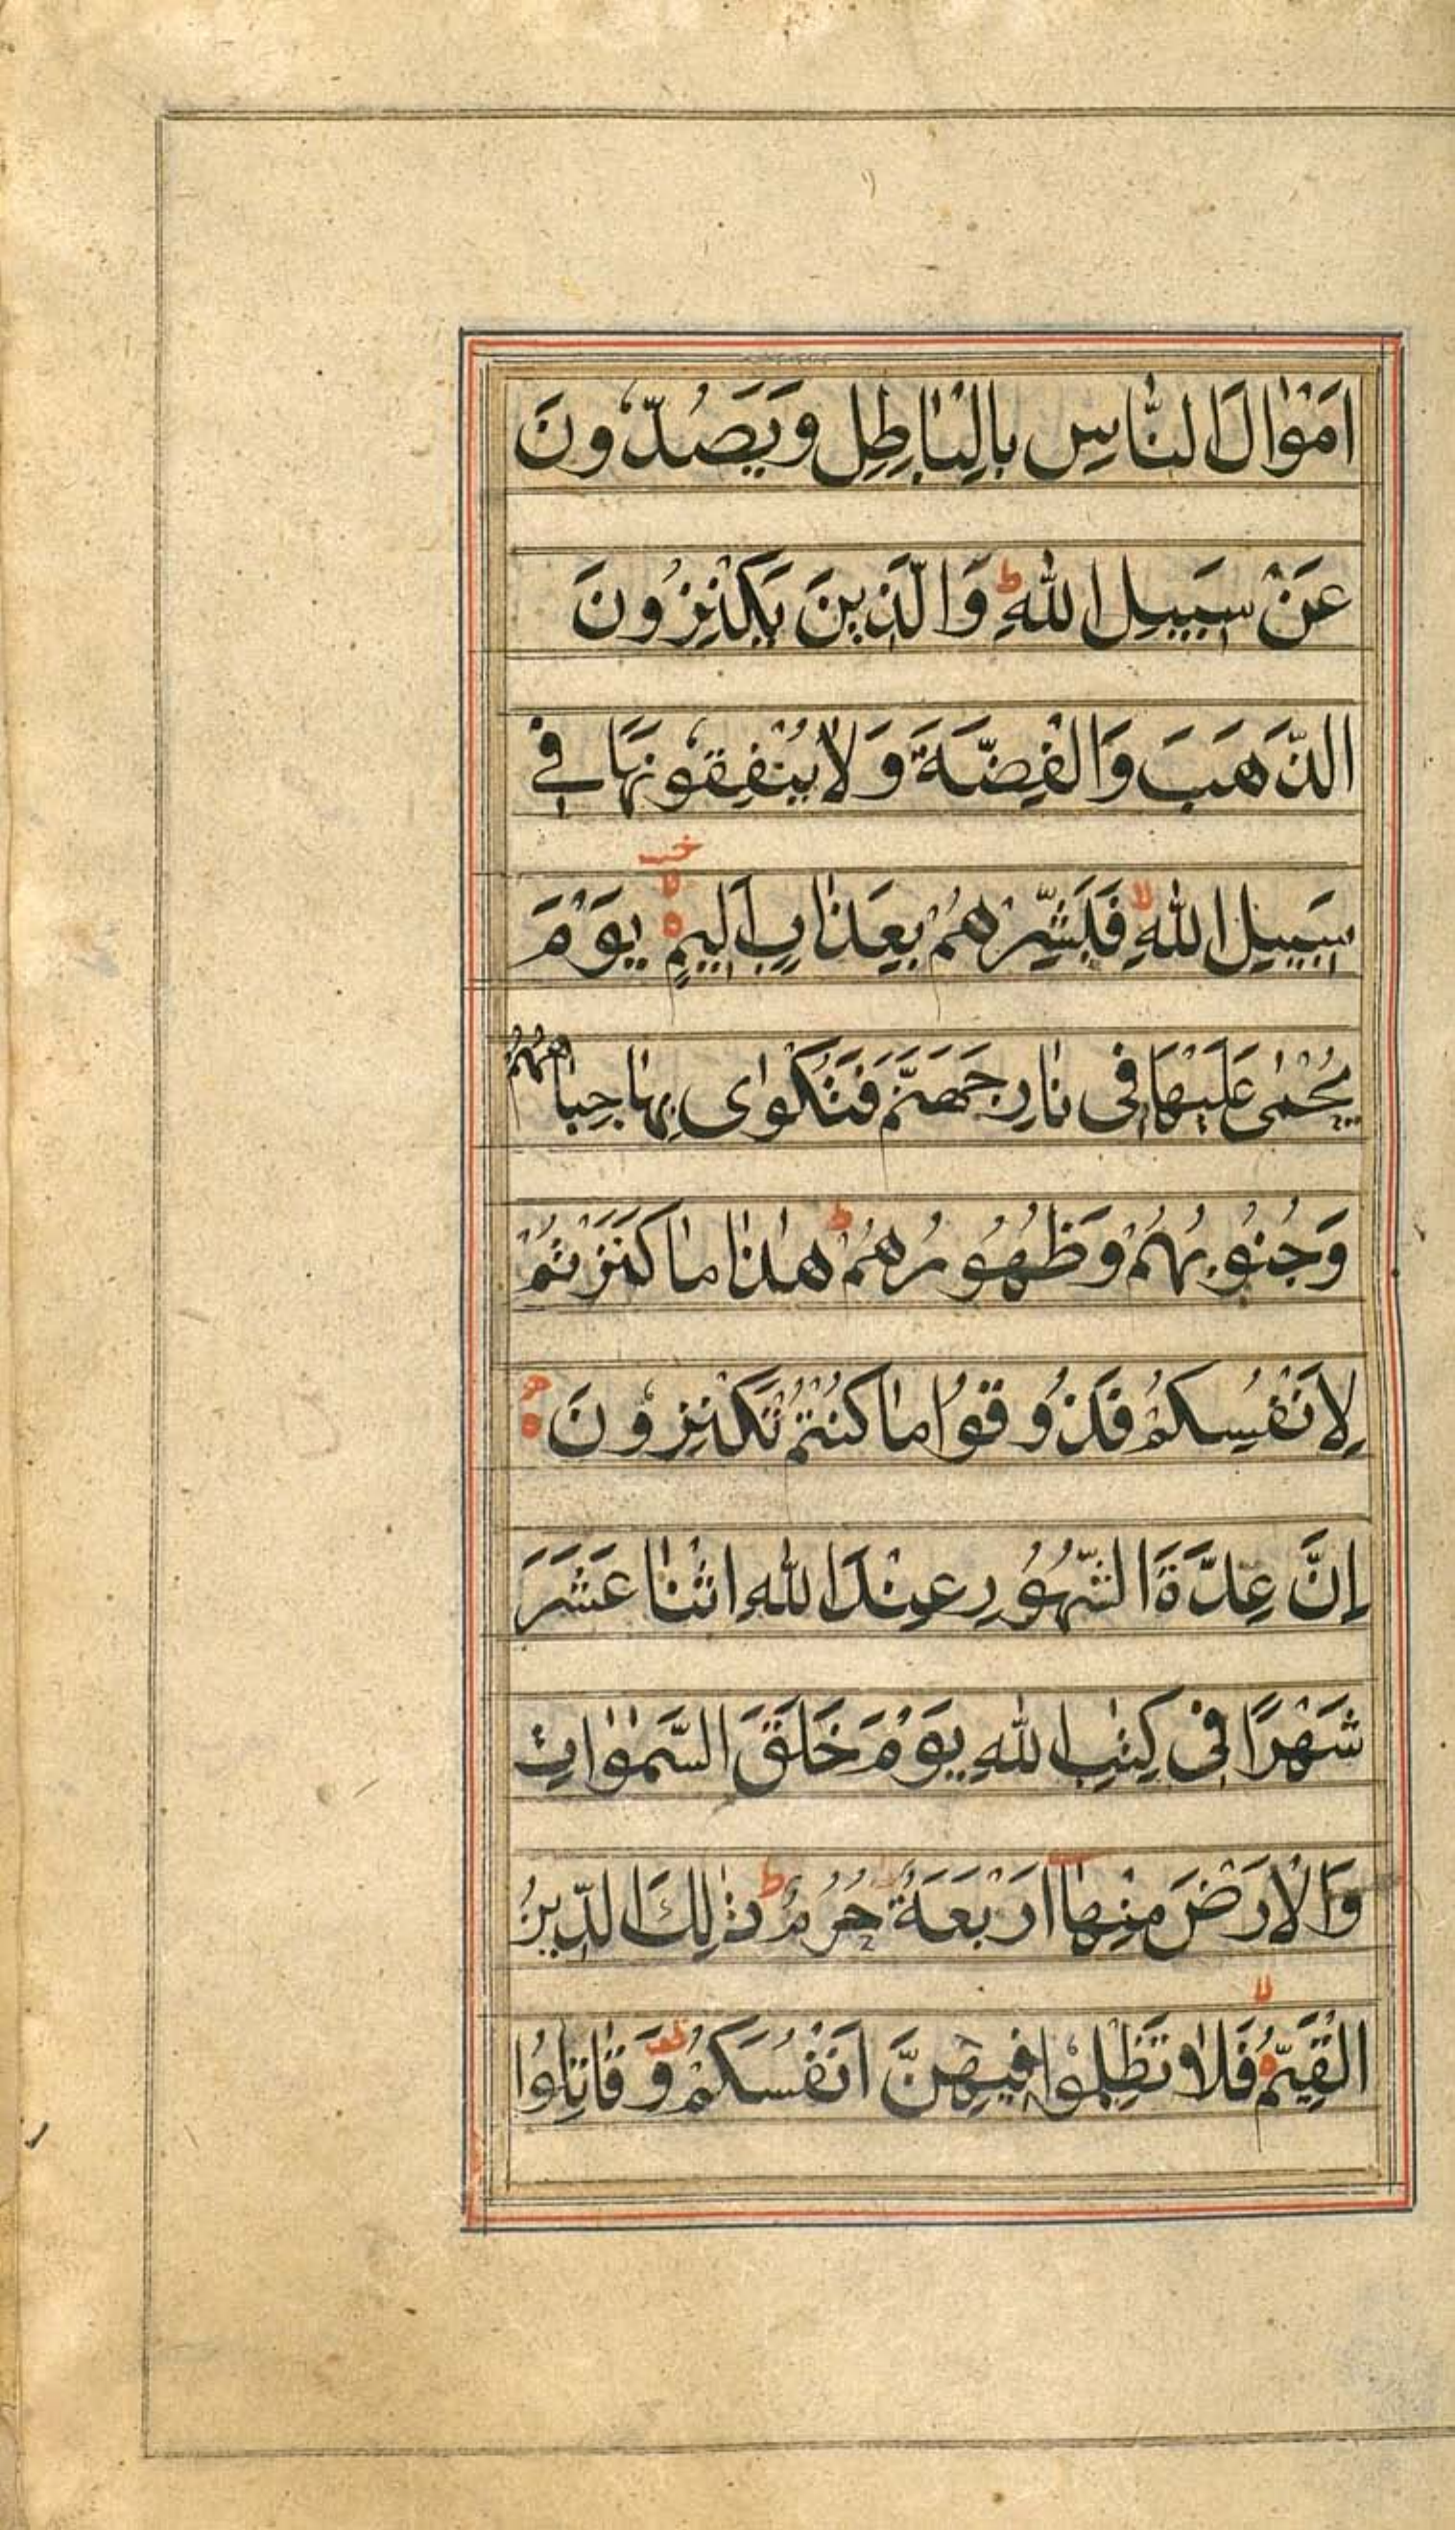 اَمْوٰالَ النّٰاسِ بِالْبٰاطِلِ وَيَصُدّوُنَ
عَنْ سَبيلِ اللّٰهِ ط وَالَّذينَ يَكْنِزُونَ
الذَّهَبَ وَالْفِضَّةَ وَلاٰ يُنْفِقوُنَهٰا في
سَبيلِ اللّٰهِ لا فَبَشِّرْهُمْ بِعَذٰابٍ اَليمٍ يَوْمَ
يُحْمٰى عَلَيْهٰا فى نٰارِ جَهَنَّمَ فَتُكْوٰاى بِهٰا جِبٰاهُهُمْ
وَجُنوُبُهُمْ وَظُهُورُهُمْ ط هٰذٰا مٰا كَنَزْتُمْ
لِاَنْفُسِكُمْ فَذُوقوُا مٰا كُنْتُمْ تَكْنِزوُنَ
اِنَّ عِدَّةَ الشُّهُورِ عِنْدَ اللّٰهِ اثْنٰا عَشَرَ
شَهْرًا فى كِتٰبِ اللّٰهِ يَوْمَ خَلَقَ السَّمٰوٰاتِ
وَالْاَرْضَ مِنْهٰا اَرْبَعَةٌ حُرُمٌ ط ذٰلِكَ الدّينُ
الْقَيِّمُ لا فَلاٰ تَظْلِموُا فيهِنَّ اَنْفُسَكُمْ وَقٰاتِلوُا